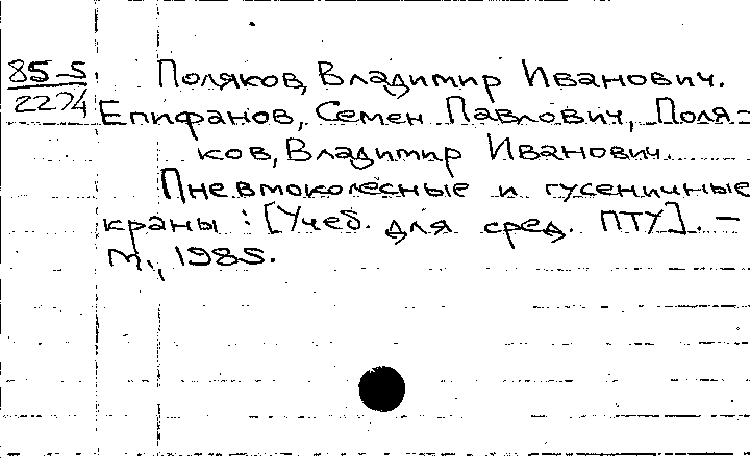 85-5
2274
Поляков, Владимир Иванович.
Епифанов, Семен Павлович, Поля-
ков, Владимир Иванович.
Пневмоколесные и гусеничные
краны : [Учеб. для сред. ПТУ]. –
М., 1985.